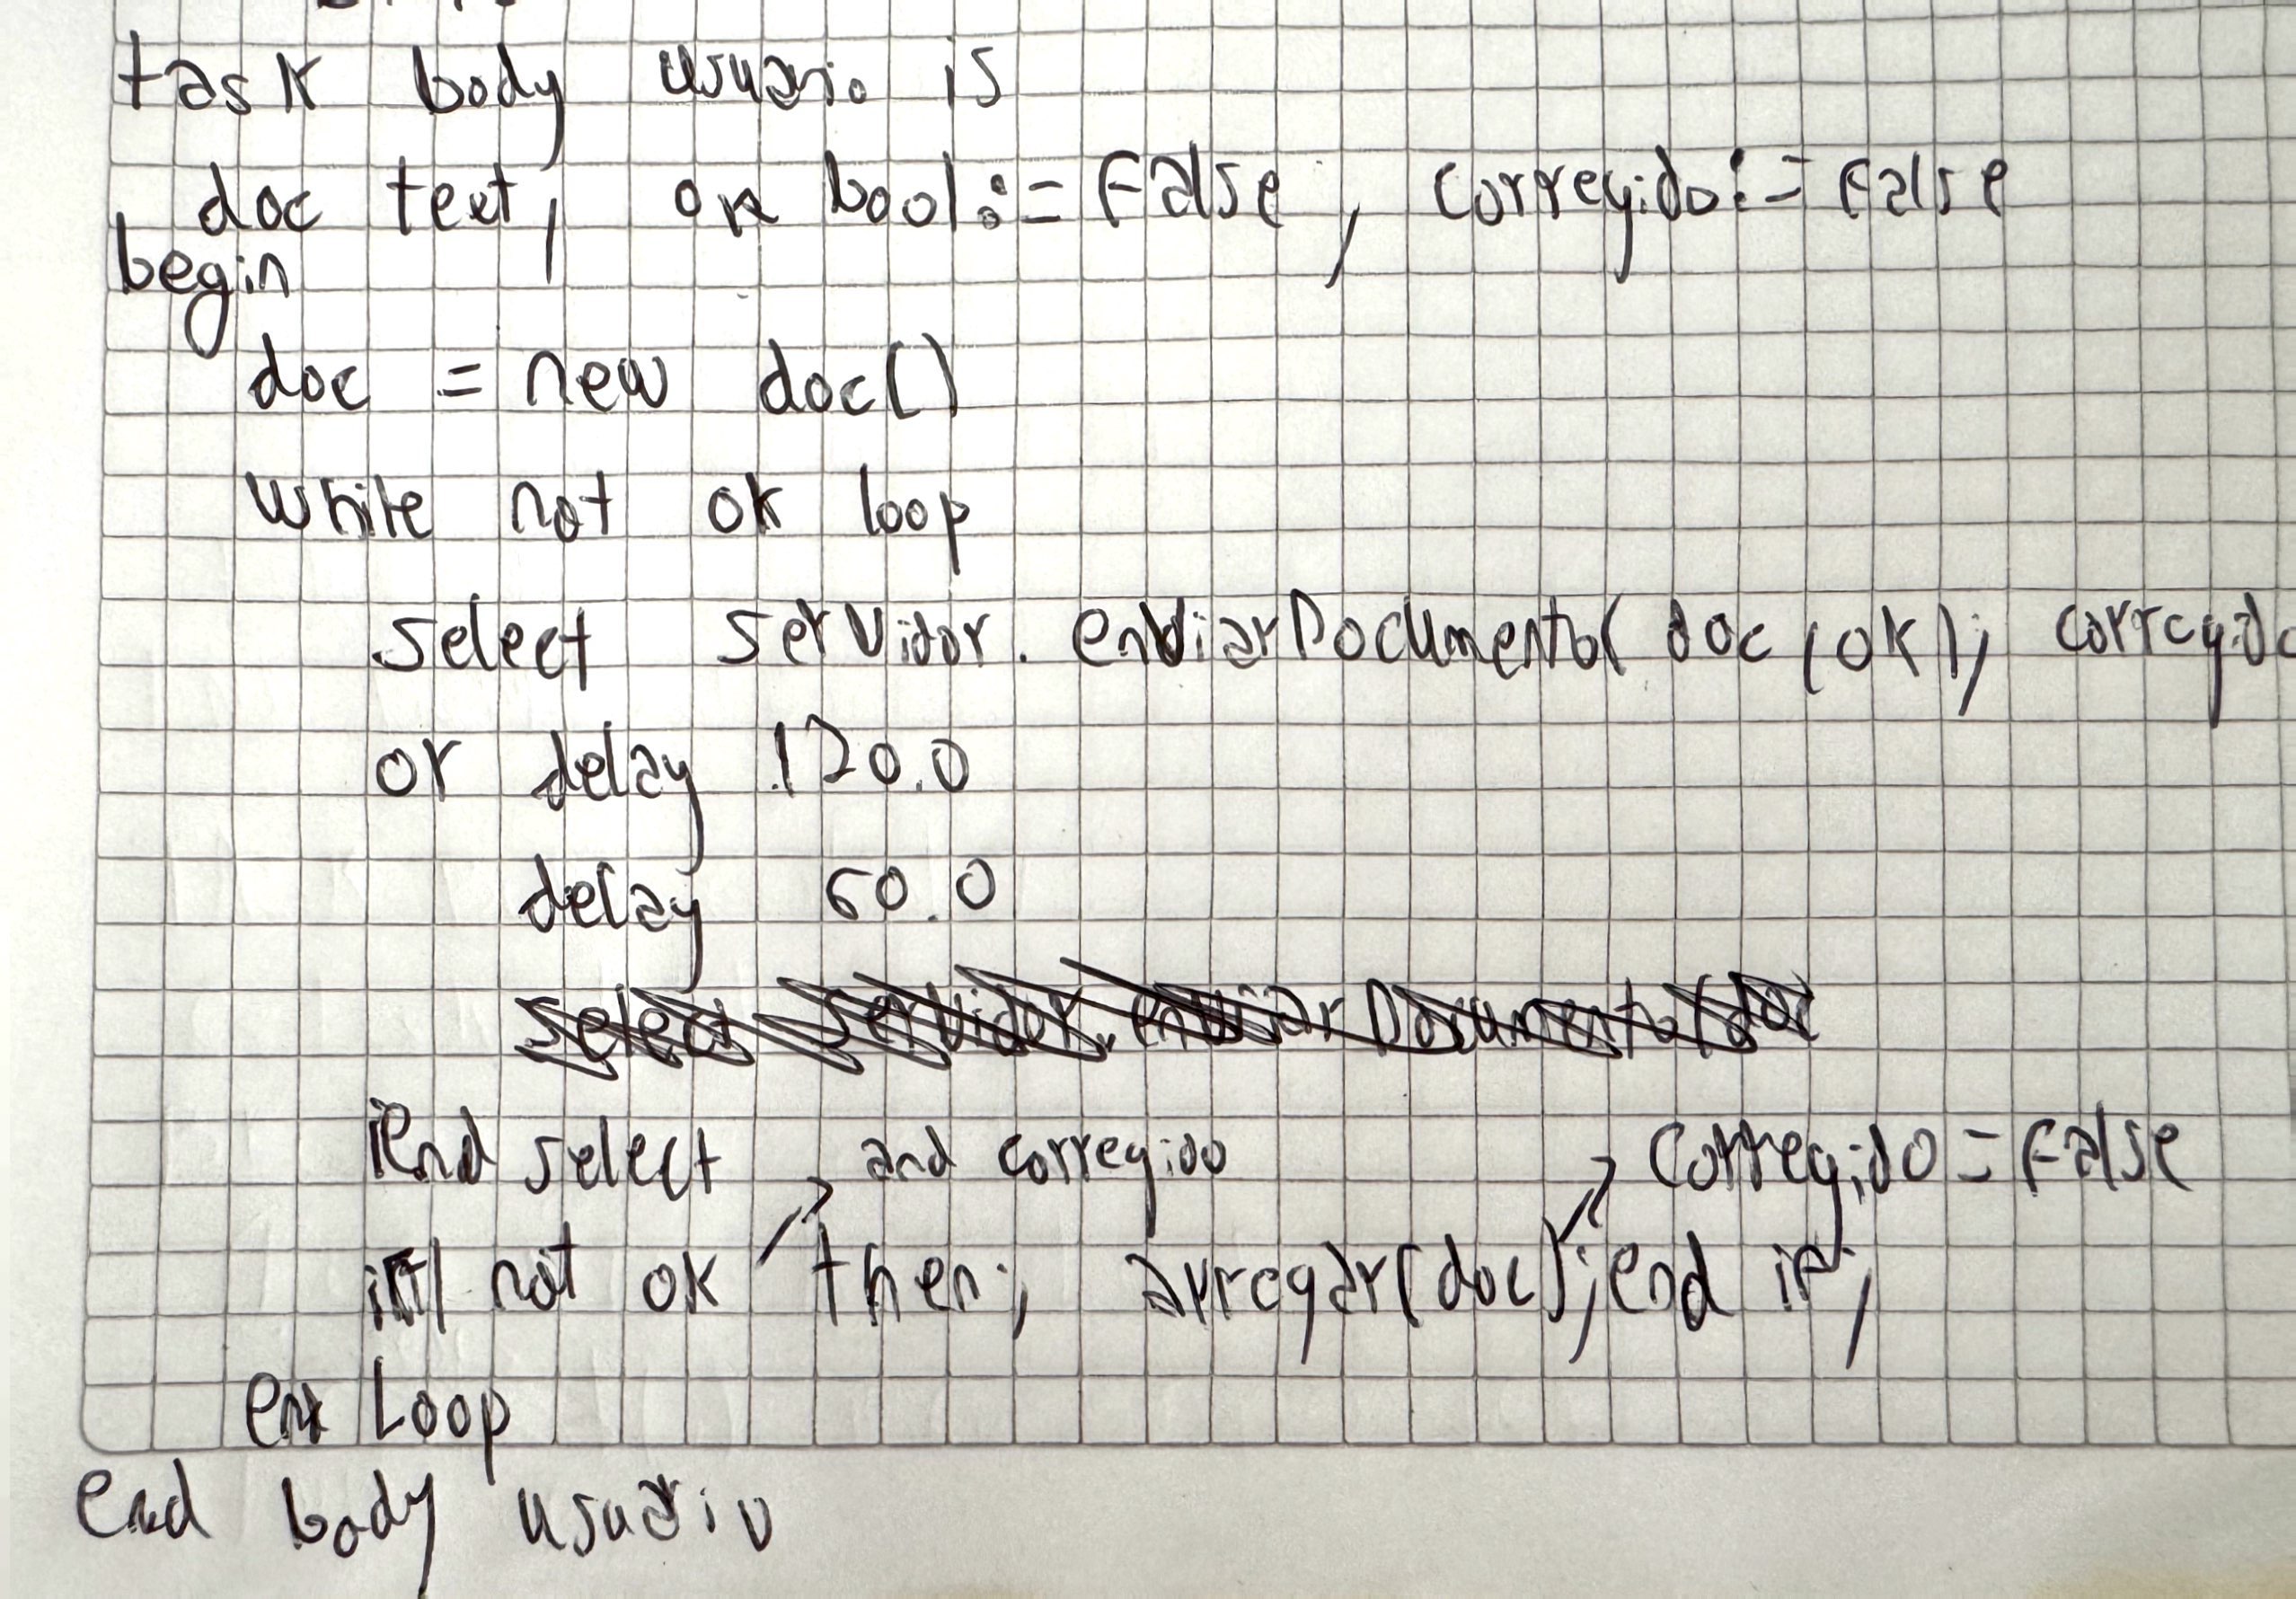 task body usuario is
doc text, ok bool:= False, corregido:= False
begin
doc = new doc()
while not ok loop
select servidor. enviarDocumento( doc, ok); corregido
or delay 120.0
delay 60.0
select servidor. enviar Documento(doc
end select
and corregido
corregido = False
if not ok then; arregar(doc); end if;
end Loop
end body usuario